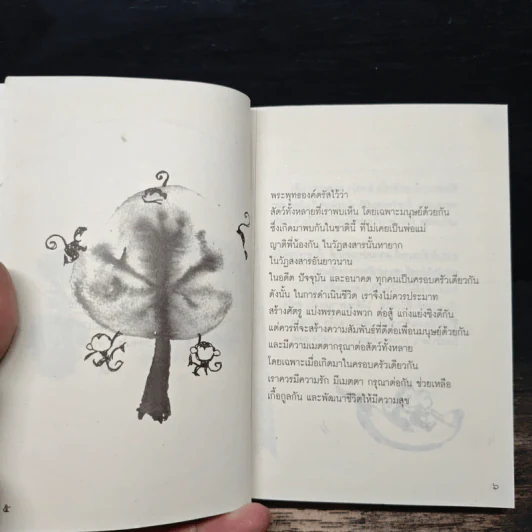 พระพุทธองค์ตรัสไว้ว่า
สัตว์ทั้งหลายที่เราพบเห็น โดยเฉพาะมนุษย์ด้วยกัน
ซึ่งเกิดมาพบกันในชาตินี้ ที่ไม่เคยเป็นพ่อแม่
ญาติพี่น้องกัน ในวัฏสงสารนั้นหายาก
ในวัฏสงสารอันยาวนาน
ในอดีต ปัจจุบัน และอนาคต ทุกคนเป็นครอบครัวเดียวกัน
ดังนั้น ในการดำเนินชีวิต เราจึงไม่ควรประมาท
สร้างศัตรู แบ่งพรรคแบ่งพวก ต่อสู้ แก่งแย่งชิงดีกัน
แต่ควรที่จะสร้างความสัมพันธ์ที่ดีต่อเพื่อนมนุษย์ด้วยกัน
และมีความเมตตากรุณาต่อสัตว์ทั้งหลาย
โดยเฉพาะเมื่อเกิดมาในครอบครัวเดียวกัน
เราควรมีความรัก มีเมตตา กรุณาต่อกัน ช่วยเหลือ
เกื้อกูลกัน และพัฒนาชีวิตให้มีความสุข
๕
๖